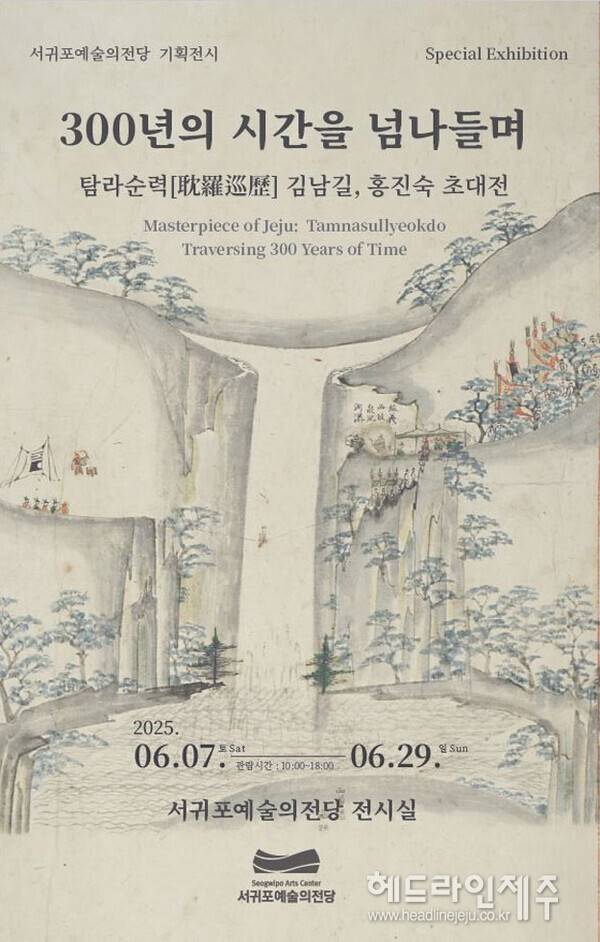 서귀포예술의전당 기획전시
Special Exhibition
300년의 시간을 넘나들며
탐라순력[耽羅巡歷] 김남길, 홍진숙 초대전
Masterpiece of Jeju: Tamnasullyeokdo
Traversing 300 Years of Time
2025.
06.07. 토 Sat 06.29. 일 Sun
관람시간 : 10:00~18:00
서귀포예술의전당 전시실
Seogwipo Arts Center
서귀포예술의전당
헤드라인제주
www.headlinejeju.co.kr